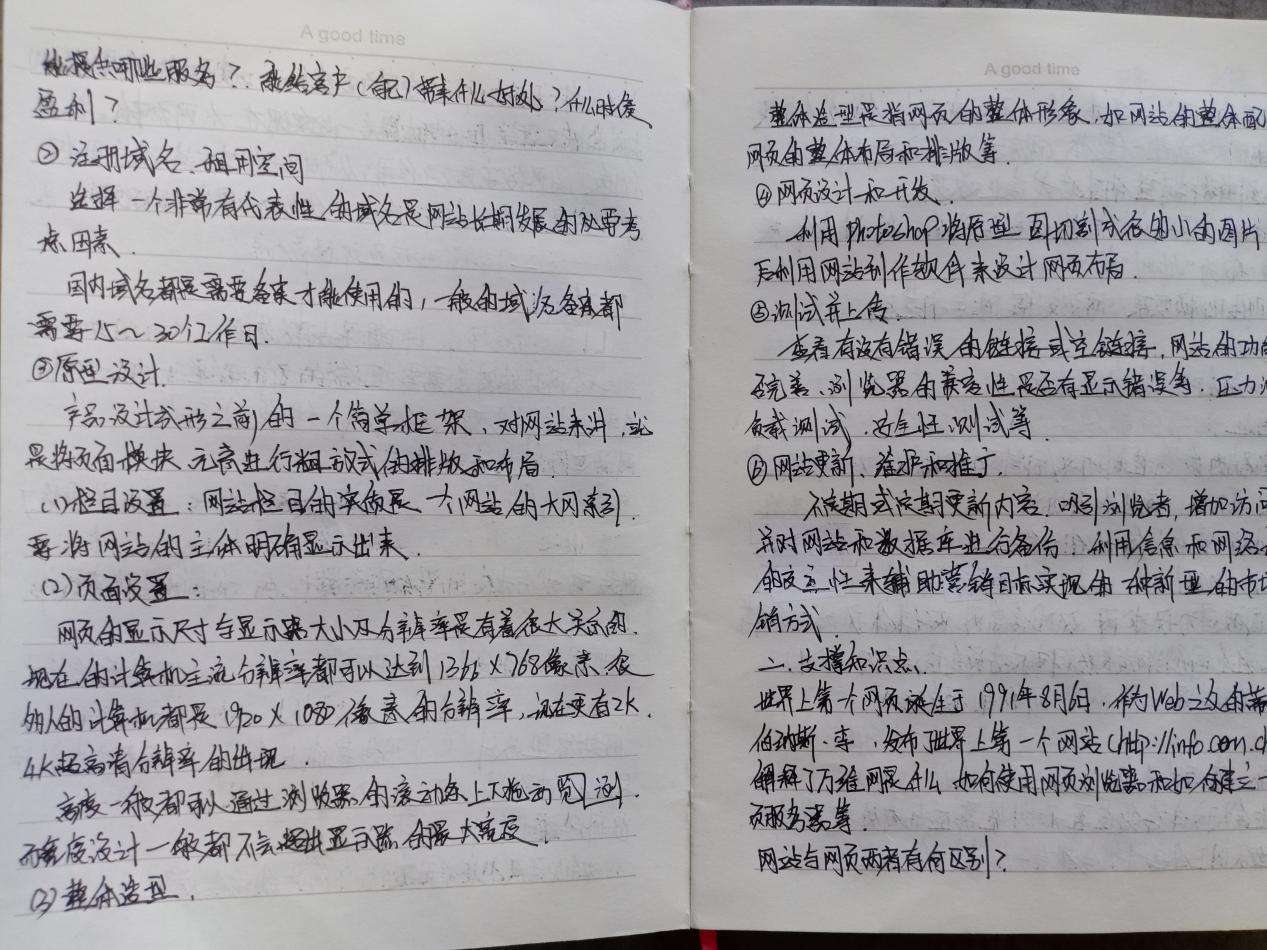 A good time
能提供哪些服务？能给客户（自己）带来什么好处？什么时候
盈利？
② 注册域名、租用空间
选择一个非常有代表性的域名是网站长期发展的必要考
虑因素.
国内域名都是需要备案才能使用的，一般的域名备案都
需要15～30个工作日.
③原型设计.
产品设计成形之前的一个简单框架、对网站来讲，就
是将页面模块、元素进行粗放式的排版和布局
(1)栏目设置：网站栏目的实质是一个网站的大冈索引.
要将网站的主体明确显示出来.
(2)页面设置：
网页的显示尺寸与显示器大小及分辨率是有着很大关系的.
现在的计算机主流分辨率都可以达到1366×768像素.很
多人的计算机都是1920×1080像素的分辨率，现在更有2K.
4K超高清分辨率的出现.
高度一般都可以通过浏览器的滚动条上下拖动 浏
而宽度设计一般都不会超出显示器的最大宽度.
(3)整体造型.
A good time
整体造型是指网页的整体形象，如网站的整体配
网页的整体布局和排版等.
④网页设计和开发.
利用Photoshop将原型图切割成各的小的图片
后利用网站制作软件来设计网页布局.
⑤测试并上传.
查看有没有错误的链接或空链接，网站的功能
否完善、浏览器的兼容性是否有显示错误等.压力测
负载测试、安全性测试等.
⑥网站更新、维护和推广.
不定期或定期更新内容.吸引浏览者，增加访问
并对网站和数据库进行备份.利用信息和网络
的交互性来辅助营销目标实现的一种新型的市场
销方式.
二、支撑知识点.
世界上第一个网页诞生于1991年8月6日.作为Web之父的蒂
伯纳斯·李，发布了世界上第一个网站(http://info.cern.ch
解释了万维网是什么，如何使用网页浏览器和如何建立一
页服务器等.
网站与网页两者有何区别？